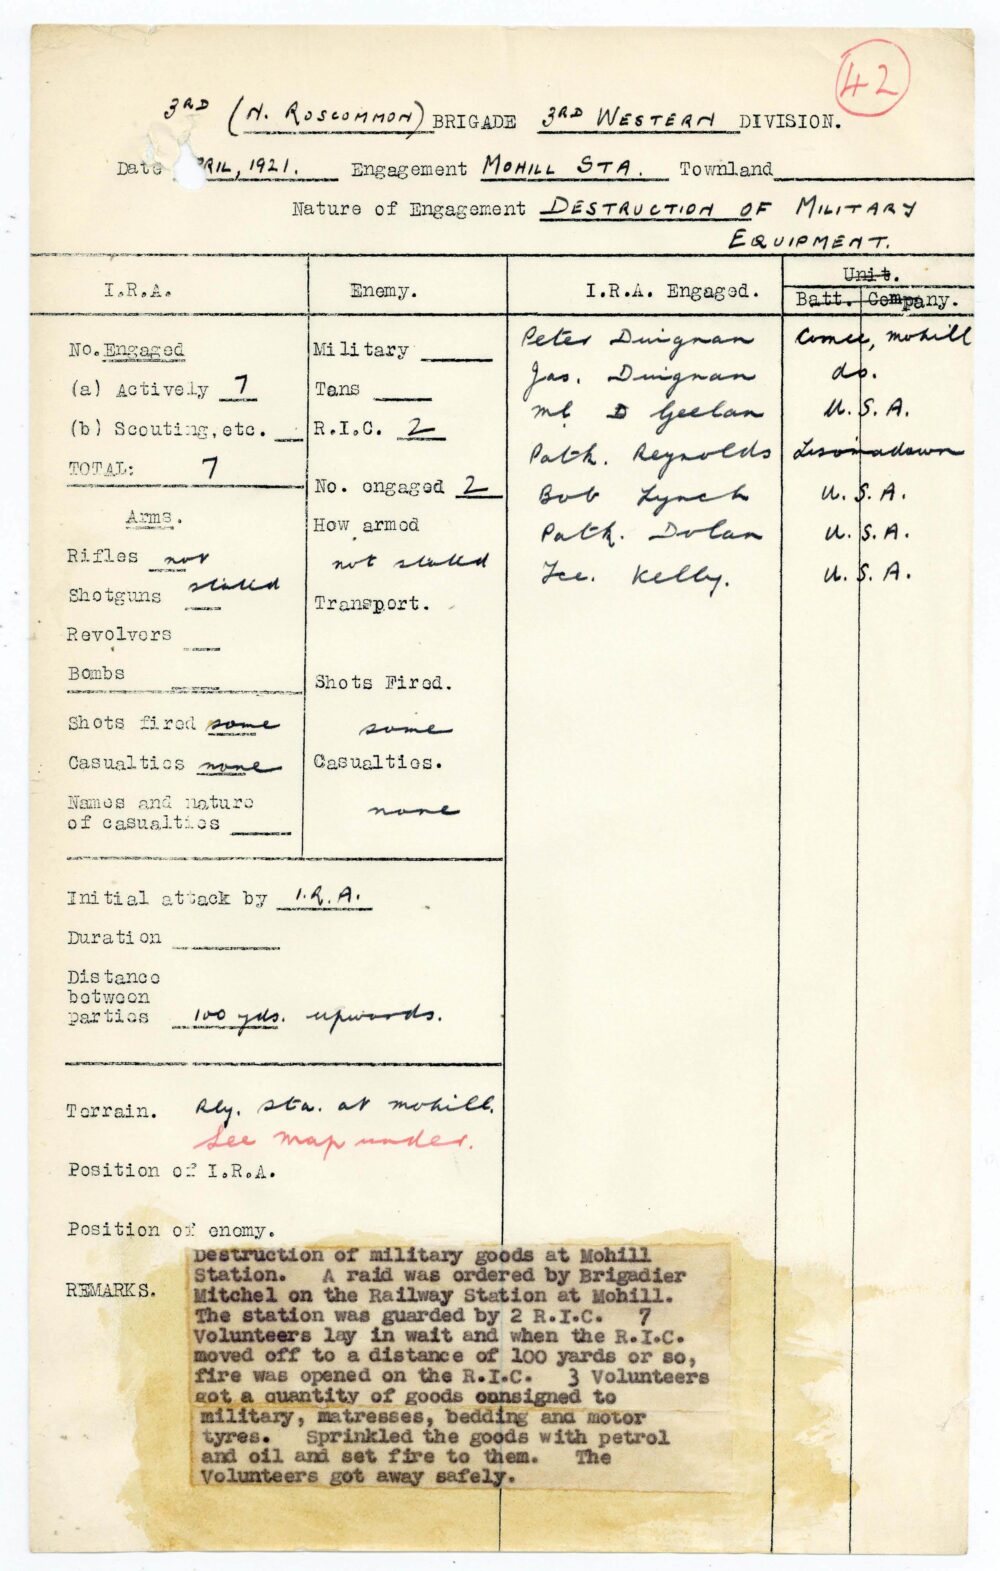 42
3RD (N. ROSCOMMON) BRIGADE 3RD WESTERN DIVISION.
Date PRIL, 1921. Engagement MOHILL STA. Townland
Nature of Engagement DESTRUCTION OF MILITARY
EQUIPMENT.
I.R.A.
Enemy.
I.R.A. Engaged.
Unit.
Batt. Company.
No. Engaged
(a) Actively 7
(b) Scouting, etc.
TOTAL: 7
Arms.
Rifles not
stated
Shotguns
Revolvers
Bombs
Shots fired some
Casualties none
Names and nature
of casualties
Military
Tans
R.I.C. 2
No. engaged 2
How armed
not stated
Transport.
Shots Fired.
some
Casualties.
none
Peter Duignan Comee, Mohill
Jas. Duignan do.
Ml D Geelan U.S.A.
Patk. Reynolds
Bob Lynch U.S.A.
Patk. Dolan U.S.A.
Jce. Kelly. U.S.A.
Initial attack by I.R.A.
Duration
Distance
between
parties 100 yds. upwards.
Terrain. Rly. sta. at Mohill.
See map under.
Position of I.R.A.
Position of enemy.
REMARKS.
Destruction of military goods at Mohill
Station. A raid was ordered by Brigadier
Mitchel on the Railway Station at Mohill.
The station was guarded by 2 R.I.C. 7
Volunteers lay in wait and when the R.I.C.
moved off to a distance of 100 yards or so,
fire was opened on the R.I.C. 3 Volunteers
got a quantity of goods consigned to
military, matresses, bedding and motor
tyres. Sprinkled the goods with petrol
and oil and set fire to them. The
Volunteers got away safely.